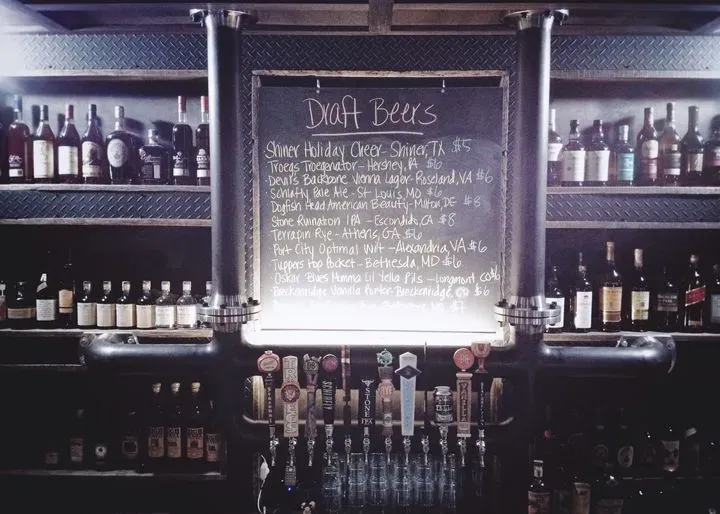 Draft Beers
Shiner Holiday Cheer - Shiner, TX $5
Troegs Troegenator - Hershey, PA $6
Devil's Backbone Vienna Lager - Roseland, VA $6
Schlafly Pale Ale - St Louis, MO $6
Dogfish Head American Beauty - Milton, DE $8
Stone Ruination IPA - Escondido, CA $8
Terrapin Rye - Athens, GA $6
Port City Optimal Wit - Alexandria, VA $6
Tuppers Hop Pocket - Bethesda, MD $6
Oskar Blues Momma Lil Yella Pils - Longmont CO $6
Breckenridge Vanilla Porter - Breckenridge, CO $6
TROEGS
SCHLAFLY
STONE
IPA
VANILLA